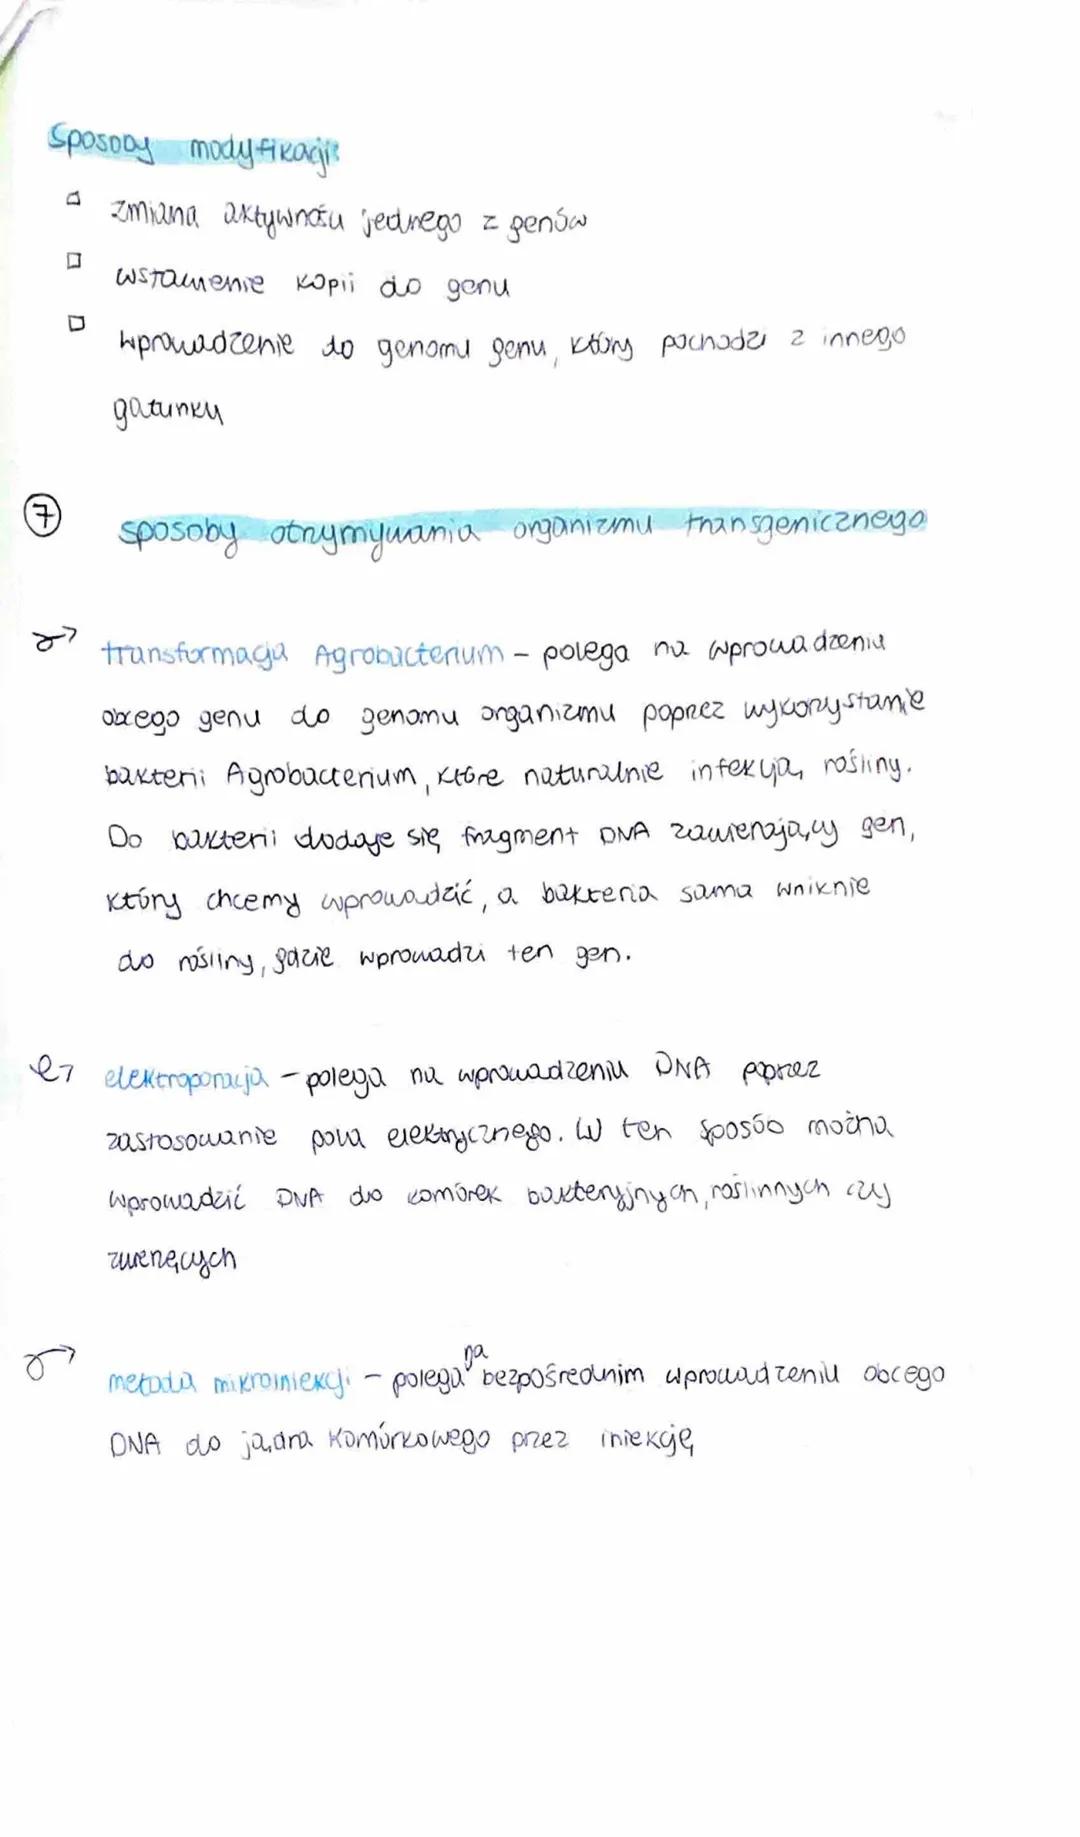 Sposoby modyfikacji:
zmiana aktywności jednego z genów
wstawienie kopii do genu
wprowadzenie do genomu genu, który pochodzi z innego
gatunku
7 sposoby otrzymywania organizmu transgenicznego
transformacja Agrobacterium – polega na wprowadzeniu
obcego genu do genomu organizmu poprzez wykorzystanie
bakterii Agrobacterium, które naturalnie infekują rośliny.
Do bakterii dodaje się fragment DNA zawierający gen,
który chcemy wprowadzić, a bakteria sama wniknie
do rośliny, gdzie wprowadzi ten gen.
elektroporacja – polega na wprowadzeniu DNA poprzez
zastosowanie pola elektrycznego. W ten sposób można
wprowadzić DNA do komórek bakteryjnych, roślinnych czy
zwierzęcych
metoda mikroiniekcji – polega na bezpośrednim wprowadzeniu obcego
DNA do jądra komórkowego przez iniekcję